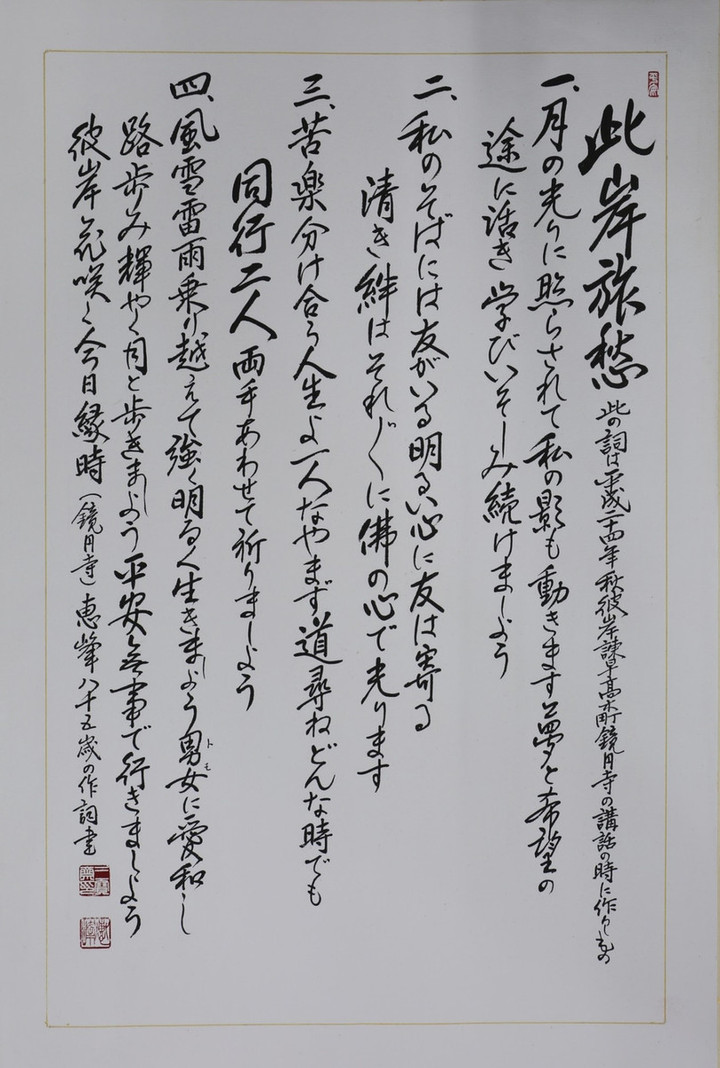 此岸旅愁 此の詞は平成二十四年秋彼岸諫早高来町鏡円寺の講話の時に作りしもの
一、月の光りに照らされて私の影も動きます夢と希望の
途に活き学びいそしみ続けましょう
二、私のそばには友がいる明るい心に友は寄る
清き絆はそれ〴〵に佛の心で光ります
三、苦楽分け合う人生よ一人なやまず道尋ねどんな時でも
同行二人両手あわせて祈りましょう
四、風雪雷雨乗り越えて強く明るく生きましょう男女に愛和し
トモ
路歩み輝やく月と歩きましょう平安無事で行きましょう
彼岸花咲く今日縁時(鏡円寺)恵峰八十五歳の作詞書